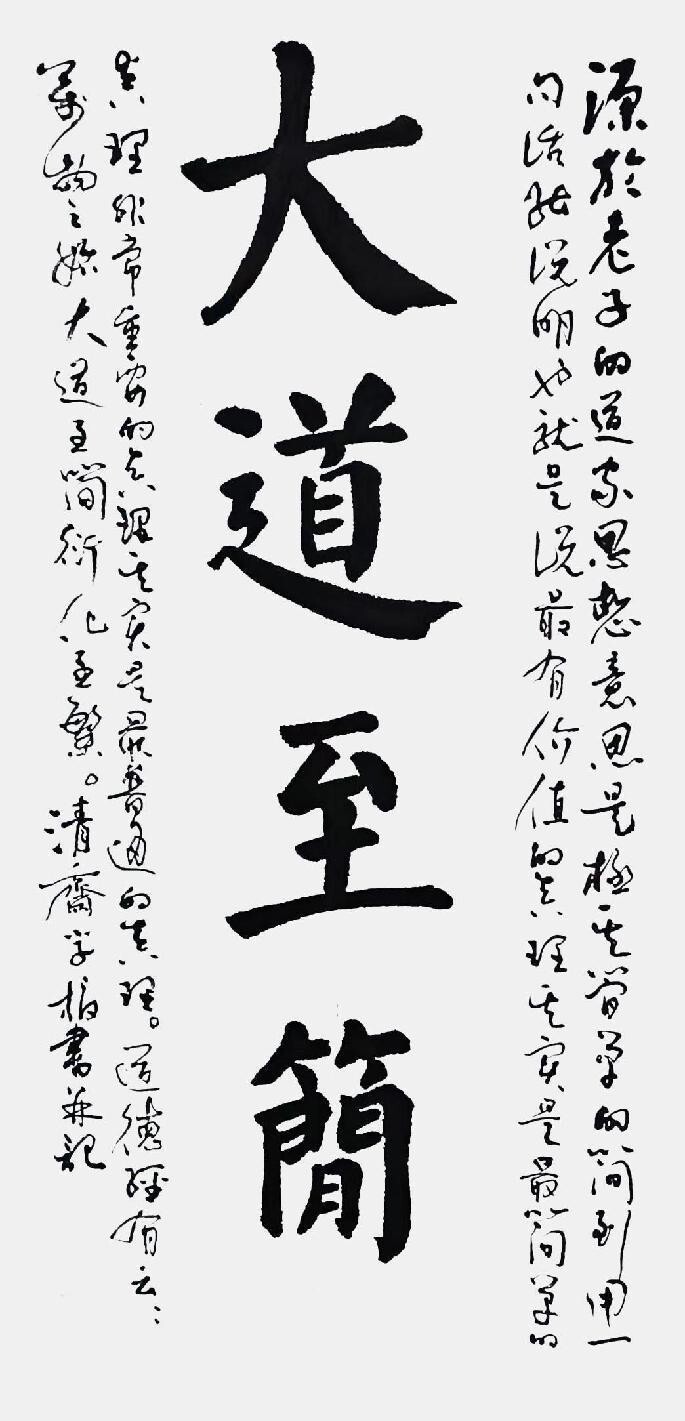 源於老子的道家思想意思是極其简单的简到用一
句话能说明也就是说最有价值的真理其实是最简单的
大道至簡
真理非常重要的真理其实是最普通的真理。道德经有云：
万物之始大道至简衍化至繁。清齋学柏書并記